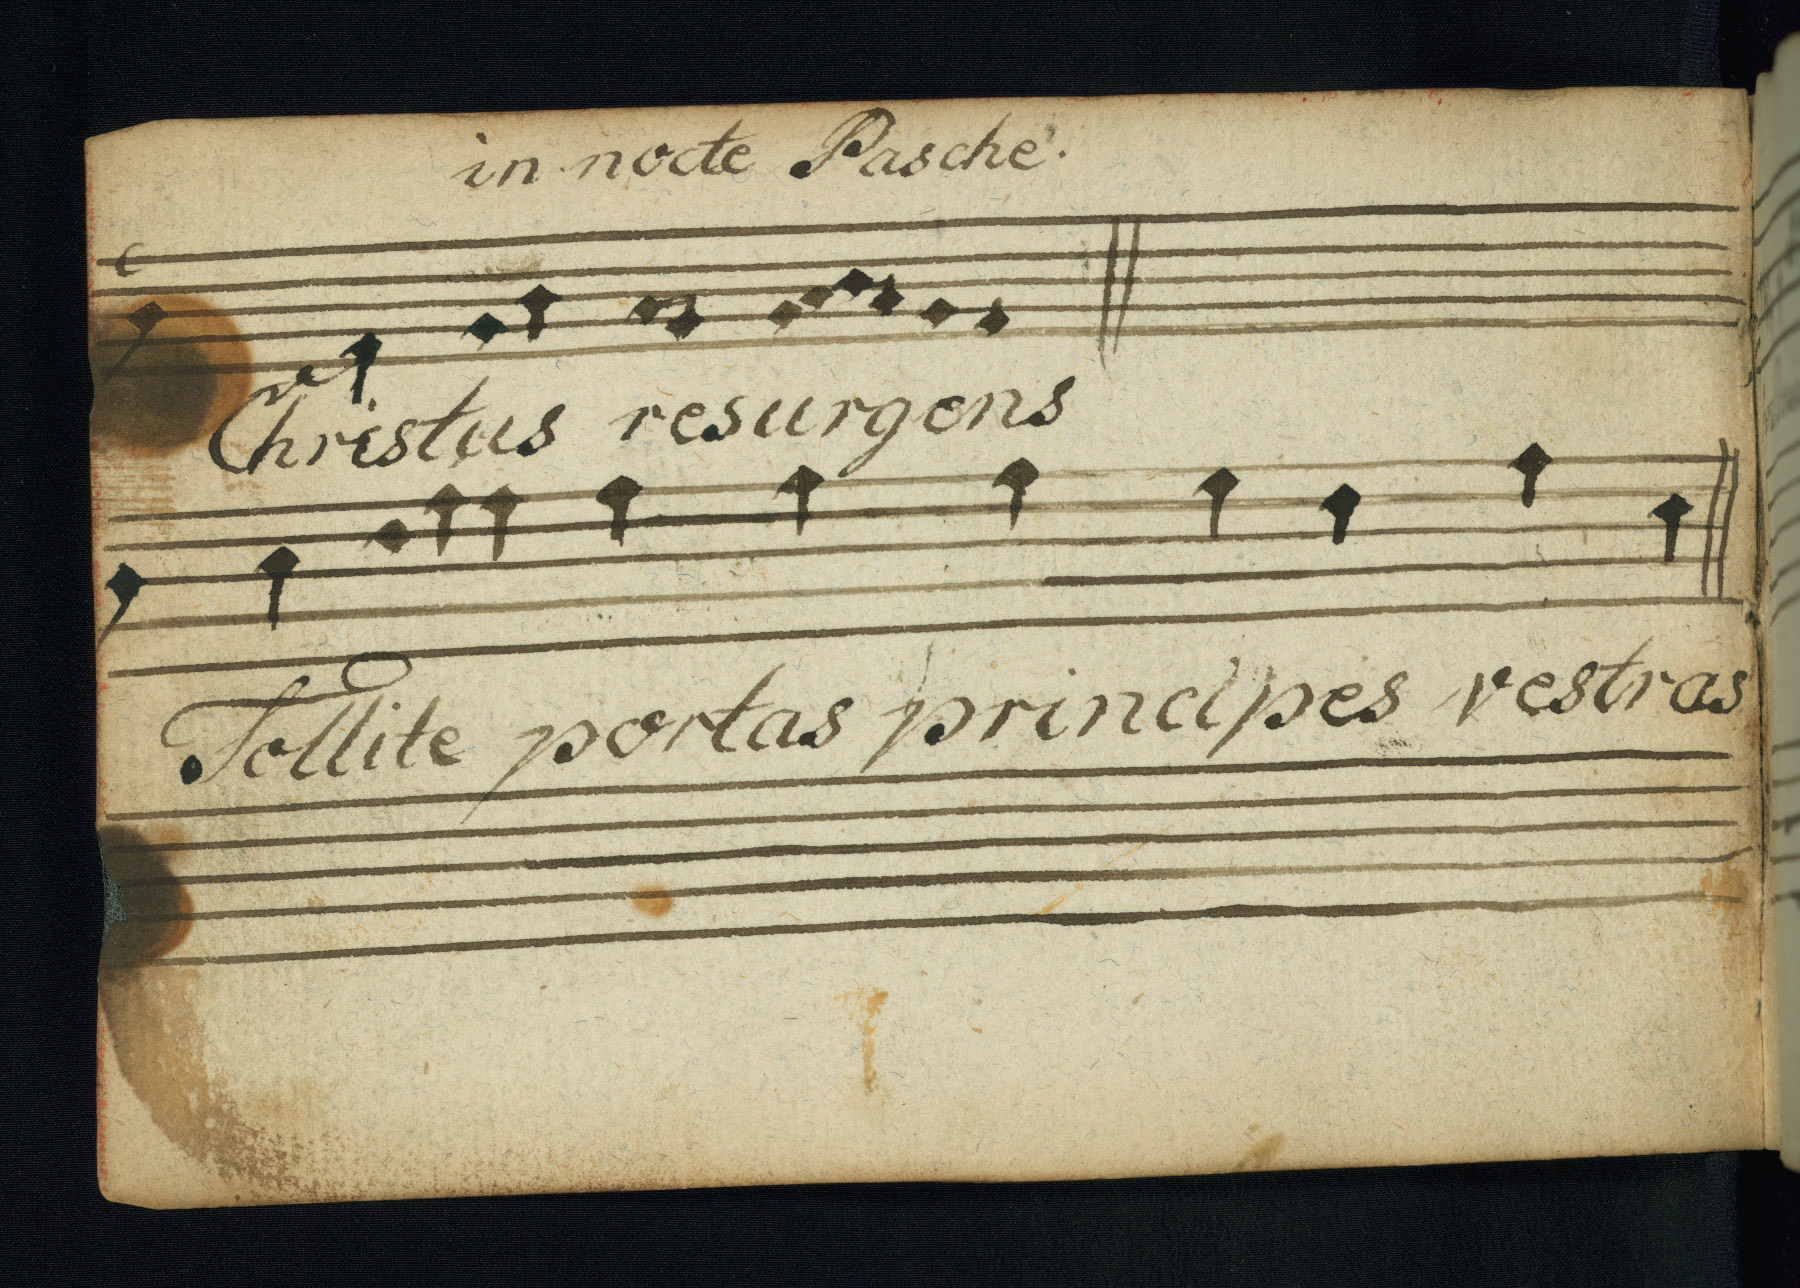 in nocte Pasche.
c
Christus resurgens
Tollite portas principes vestras